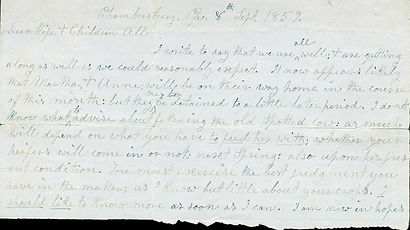 Chambersburg, Pa. 8th Sept. 1859.
Dear Wife & Children All
I write to say that we are all well; & are getting
along as well as we could reasonably expect. It now appears likely
that Martha, & Anne, will be on their way home in the course
of this month: but they may be detained to a little later period. I dont
know what to advise about fatening the old spotted cow: as much
will depend on what you have to feed her with; whether your
heifers will come in or not: next Spring: also upon her pres
ent condition. You must exercise the best judgment you
have in the matter: as I know but little about your crops. I
should like to know more as soon as I can. I am now in hopes